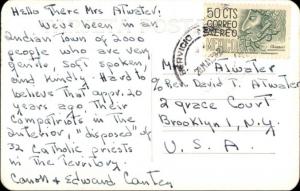 Hello There Mrs Atwater.
We've been in an
Indian Town of 2000
people who are very
gentle, soft spoken,
and kindly. Hard to
believe that appr. 20
years ago. Their
Compatriots in the
interior, "disposed" of
32 Catholic priests
in the Territory.
Edward
50 CTS
CORREO
AEREO
MEXICO
SERVICIO
Mrs Atwater
c/o Rev. David T. Atwater
2 grace Court
Brooklyn 1, N.Y
U.S.A.